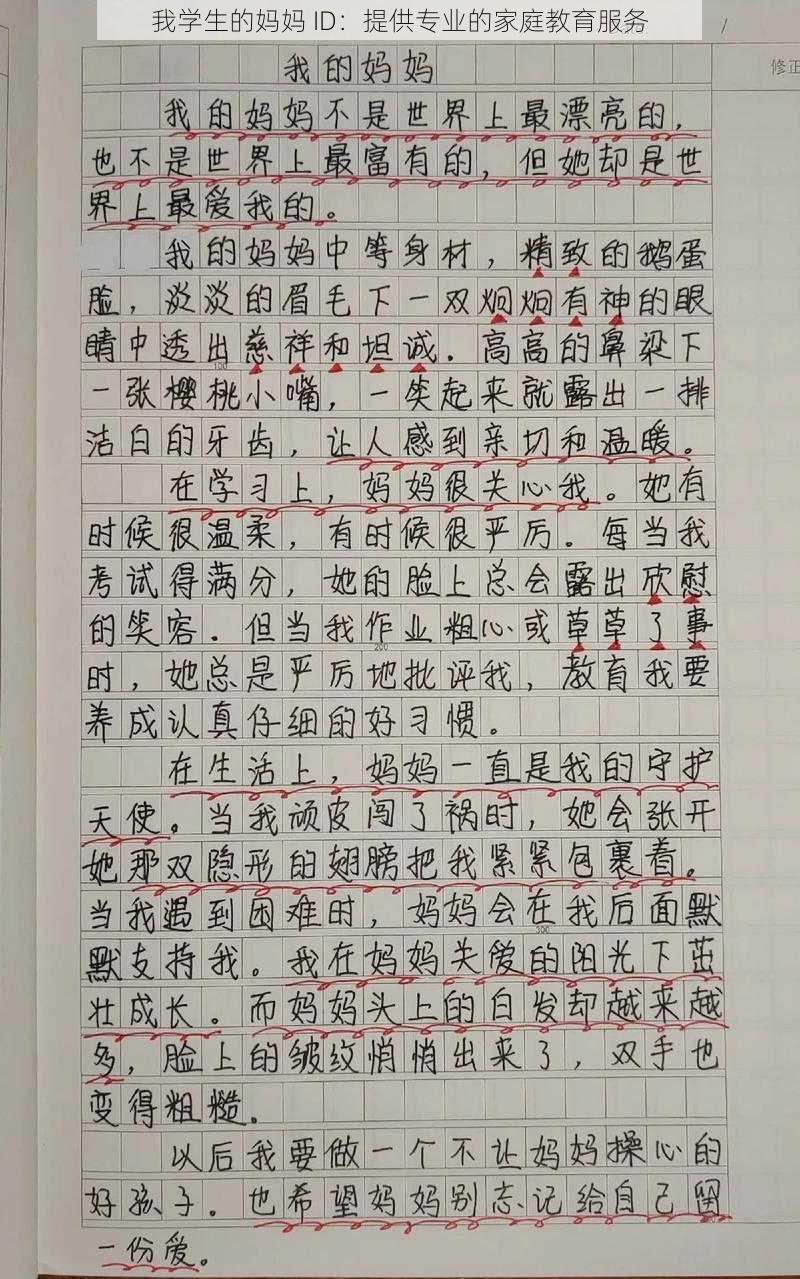 我学生的妈妈 ID：提供专业的家庭教育服务
修正
我的妈妈
我的妈妈不是世界上最漂亮的，
也不是世界上最富有的，但她却是世
界上最爱我的。
我的妈妈中等身材，精致的鹅蛋
脸，淡淡的眉毛下一双炯炯有神的眼
睛中透出慈祥和坦诚．高高的鼻梁下
100
一张樱桃小嘴，一笑起来就露出一排
洁白的牙齿，让人感到亲切和温暖。
在学习上，妈妈很关心我。她有
时候很温柔，有时候很严厉．每当我
考试得满分，她的脸上总会露出欣慰
的笑容．但当我作业粗心或草草了事
200
时，她总是严厉地批评我，教育我要
养成认真仔细的好习惯。
在生活上，妈妈一直是我的守护
天使。当我顽皮闯了祸时，她会张开
她那双隐形的翅膀把我紧紧包裹着。
当我遇到困难时，妈妈会在我后面默
300
默支持我。我在妈妈关爱的阳光下茁
壮成长．而妈妈头上的白发却越来越
多，脸上的皱纹悄悄出来了，双手也
变得粗糙．
以后我要做一个不让妈妈操心的
好孩子．也希望妈妈别忘记给自己留
一份爱。